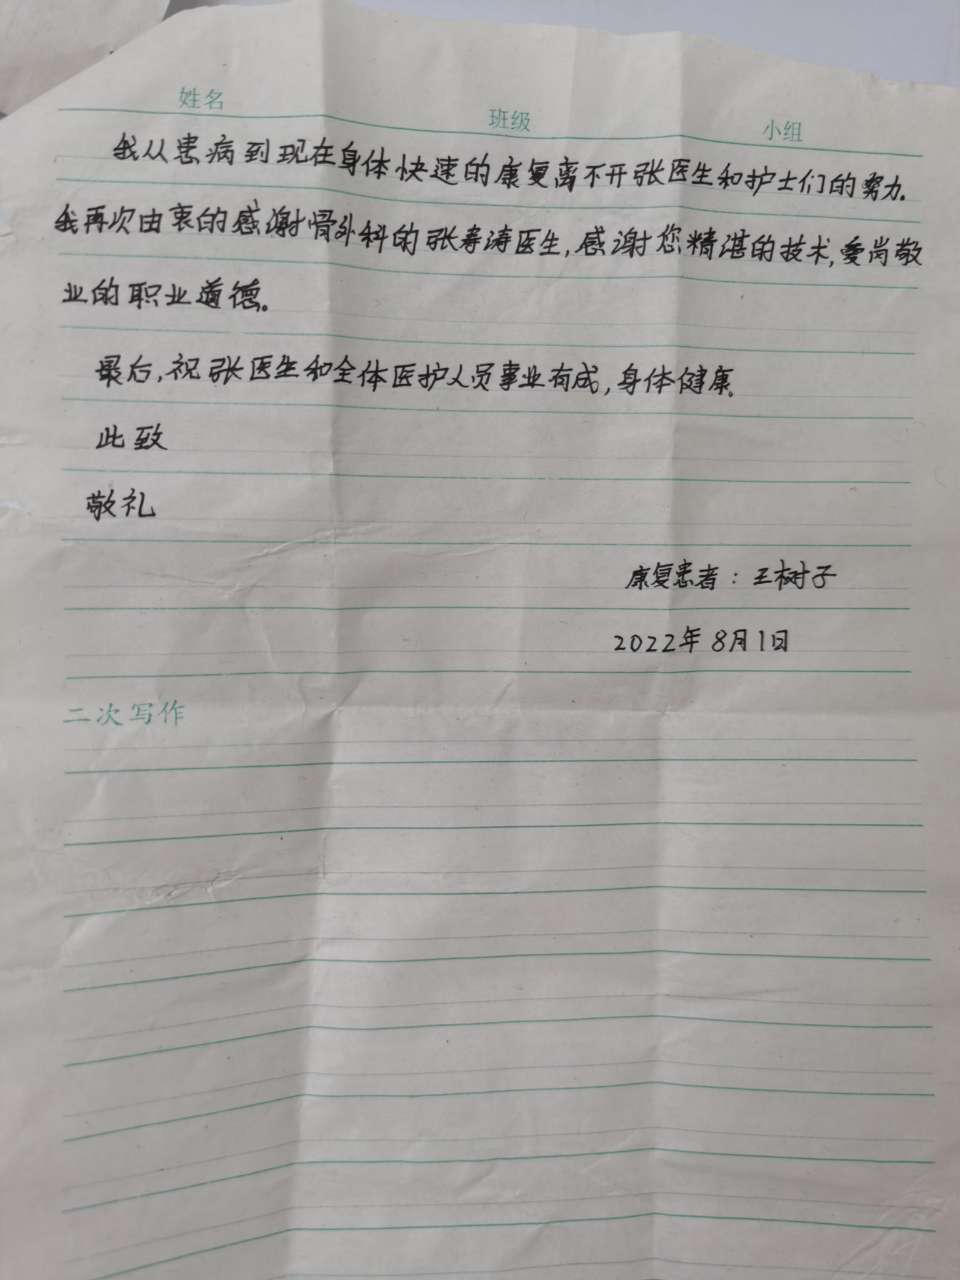 姓名 班级 小组
我从患病到现在身体快速的康复离不开张医生和护士们的努力.
我再次由衷的感谢骨外科的张寿涛医生,感谢您精湛的技术,爱岗敬
业的职业道德。
最后,祝张医生和全体医护人员事业有成,身体健康。
此致
敬礼
康复患者:王树子
2022年8月1日
二次写作